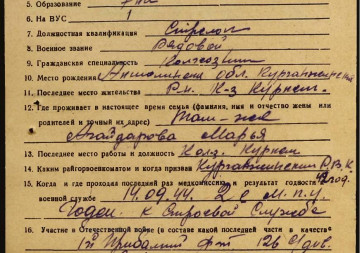 5. Образование
6. На ВУС 1
7. Должностная квалификация Стрелок
8. Военное звание Рядовой
9. Гражданская специальность Колхозник
10. Место рождения Акмолинская обл. Кургальджинский
11. Последнее место жительства Р-н. К-з
12. Где проживает в настоящее время семья (фамилия, имя и отчество жены или
родителей и точный их адрес) Там-же
Марья
13. Последнее место работы и должность Колх.
14. Каким райгорвоенкоматом и когда призван Кургальжинским Р.В.К.
15. Когда и где проходил последний раз медкомиссию, результат годности к
военной службе 14.09.44 2 с М.П.У.
Годен к Строевой Службе
16. Участие в Отечественной войне (в составе какой последней части в качестве
1й Прибалтий 126 с/див.